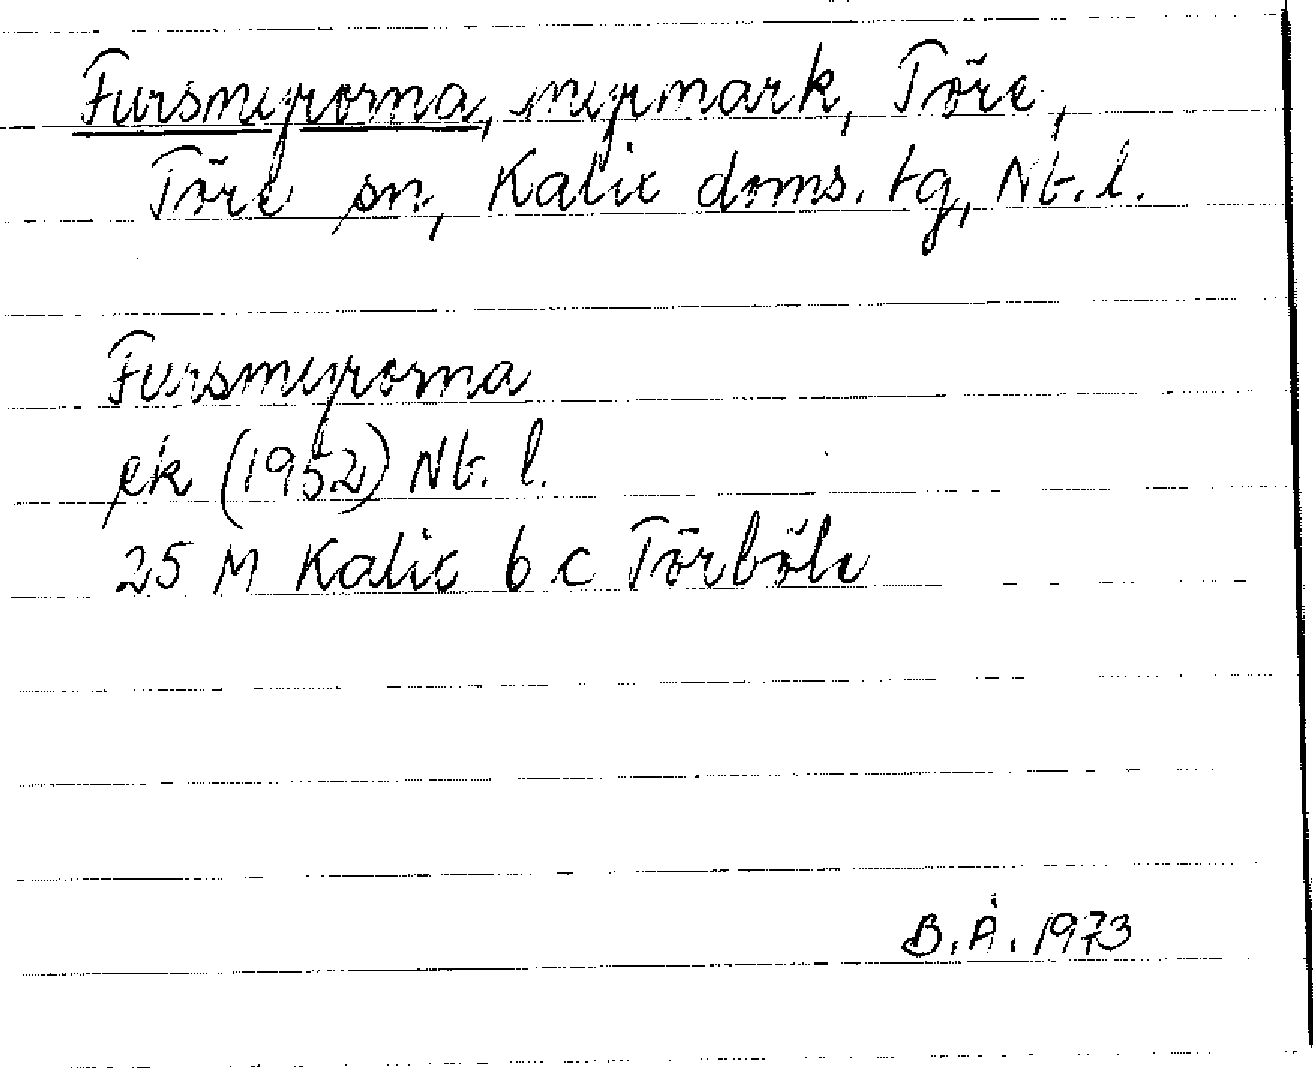 Fursmyrorna, myrmark, Töre,
Töre sn, Kalix doms. tg, Nb. l.
Fursmyrorna
ek (1952) Nb. l.
25 M Kalix 6 c Törböle
B. Å. 1973